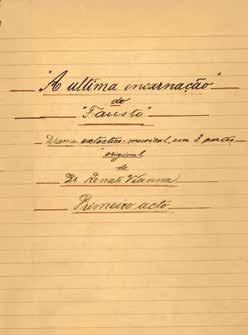 "A ultima encarnação"
do
"Fausto"
Drama extactico-musical, em 3 partes
original
de
Dr. Renato Vianna
Primeiro acto